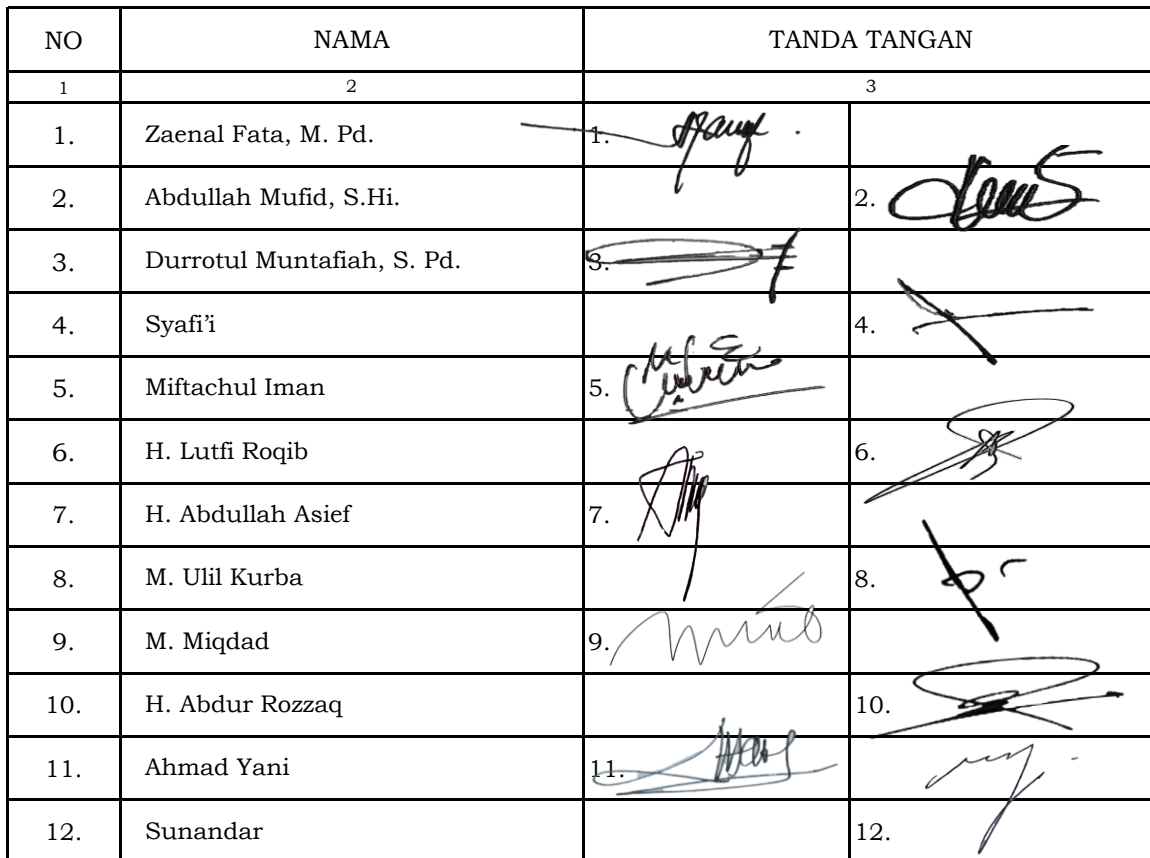 NO NAMA TANDA TANGAN
1 2 3
1. Zaenal Fata, M. Pd. 1.
2. Abdullah Mufid, S.Hi. 2.
3. Durrotul Muntafiah, S. Pd. 3.
4. Syafi’i 4.
5. Miftachul Iman 5.
6. H. Lutfi Roqib 6.
7. H. Abdullah Asief 7.
8. M. Ulil Kurba 8.
9. M. Miqdad 9.
10. H. Abdur Rozzaq 10.
11. Ahmad Yani 11.
12. Sunandar 12.